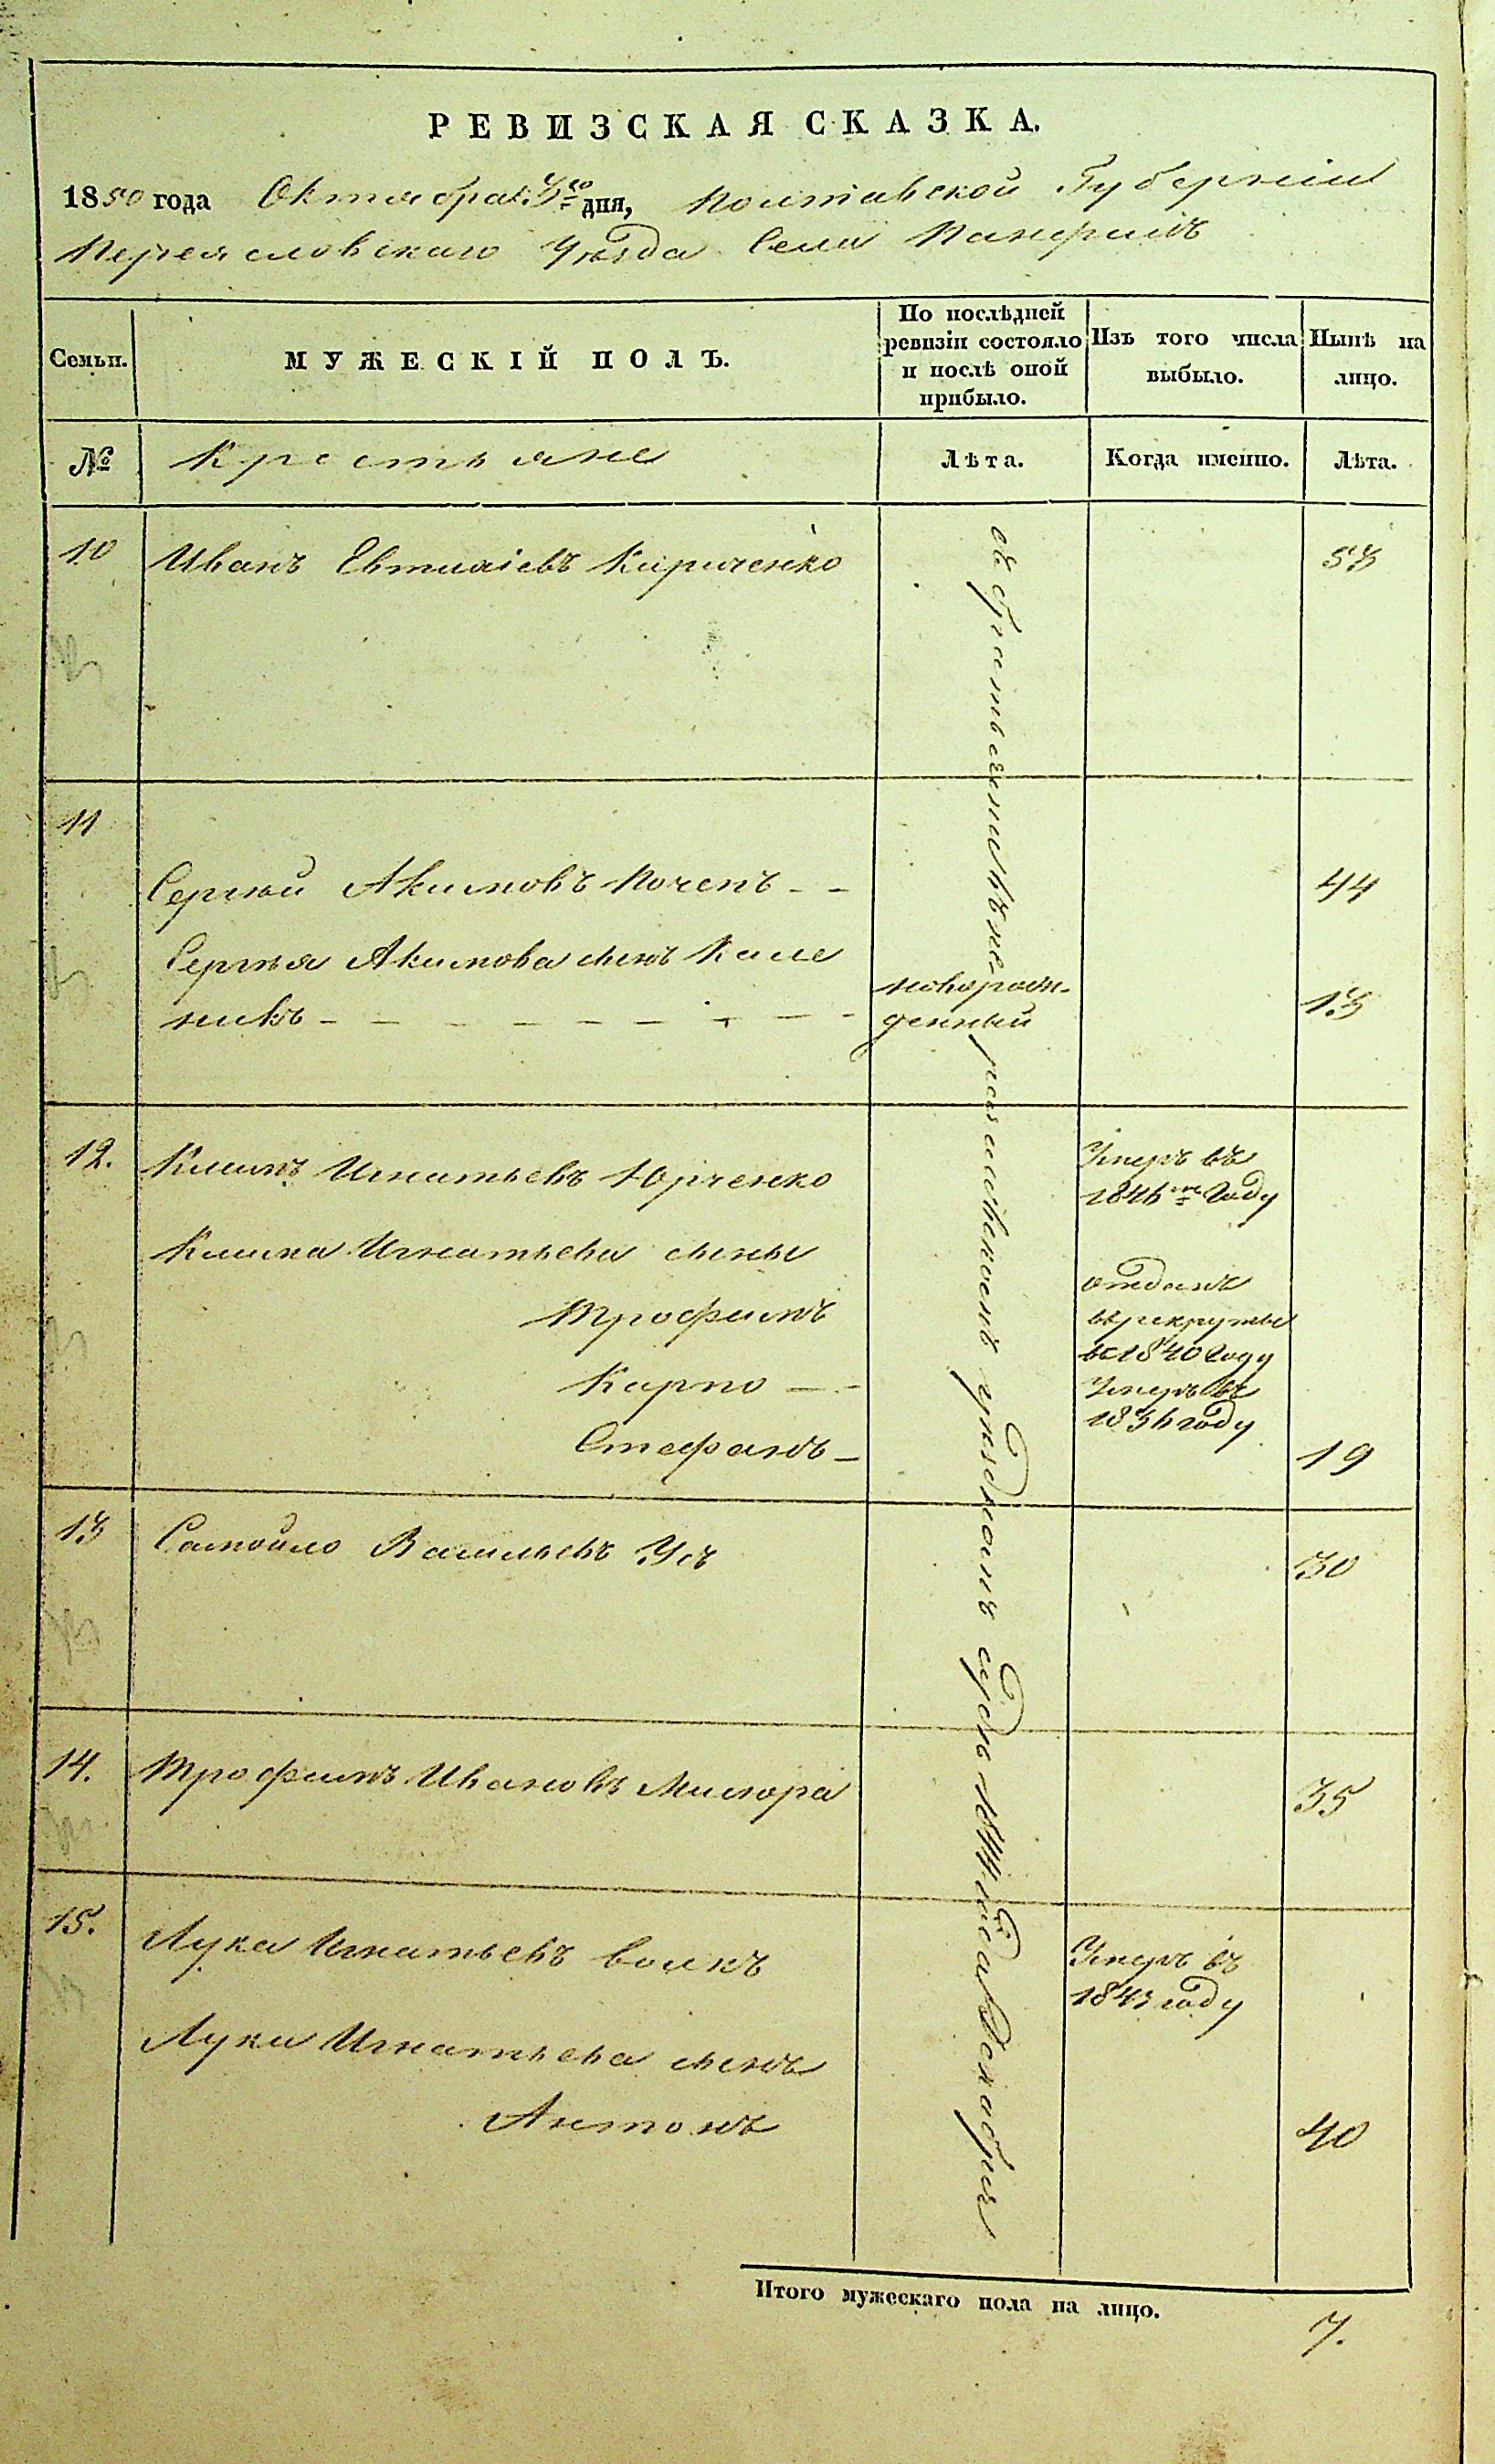 РЕВИЗСКАЯ СКАЗКА.
1850 года Октября дня, Полтавской Губерніи
Переясловскаго Уѣзда Села Панфилъ
Семьи.
МУЖЕСКІЙ ПОЛЪ.
По послѣдней ревизіи состояло и послѣ оной прибыло.
Изъ того числа выбыло.
Нынѣ на лицо.
№
Крестьяне
Лѣта.
Когда именно.
Лѣта.
10 Иванъ Кириченко 53
11
Сергѣй Акимовъ Почепъ - - 44
Сергѣя Акимова сынъ Кале
никъ - - - - - - - - - новорож-
денный 13
12. Климъ Игнатьевъ Юрченко Умеръ въ
1846 Году
Клима Игнатьева сыны
Трофимъ отданъ
въ рекруты
въ 1840 Году
Карпо - - Умеръ въ
1836 году
Стефанъ - 19
13 Самойло Васильевъ Усъ 30
14. Трофимъ Ивановъ 35
15. Лука Игнатьевъ Волкъ Умеръ въ
1843 году
Луки Игнатьева сынъ
Антонъ 40
уѣздномъ судѣ 1844 года Декабря
Итого мужескаго пола на лицо. 7.